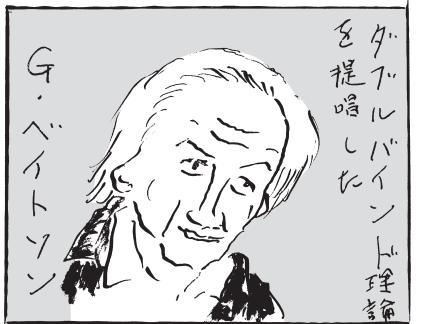 ダブルバインド理論
を提唱した
G・ベイトソン